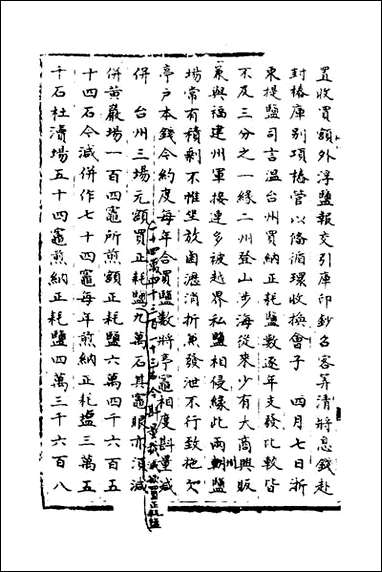 置收買額外浮鹽報交引庫印鈔召客筭清將息錢赴
封樁庫別項樁管以俻循環收換會子　四月七日浙
東提鹽司言温台州買納正耗鹽數逐年支發比較皆
不及三分之一緣二州登山涉海從來少有大商興販
兼與福建州軍接連多被越界私鹽相侵緣此兩州鹽
場常有積剩不惟坐放鹵瀝消折兼發泄不行致拖欠
亭户本錢今約度每年合買鹽數將亭竈相度斟量減
併　台州三場元額買正耗鹽九萬石其竈眼亦須減
併黄巖場一百四竈所煎額正耗鹽六萬四千六百五
十四石今減併作七十四竈每年煎納正耗鹽三萬五
千石杜瀆場五十四竈煎納正耗鹽四萬三千六百八